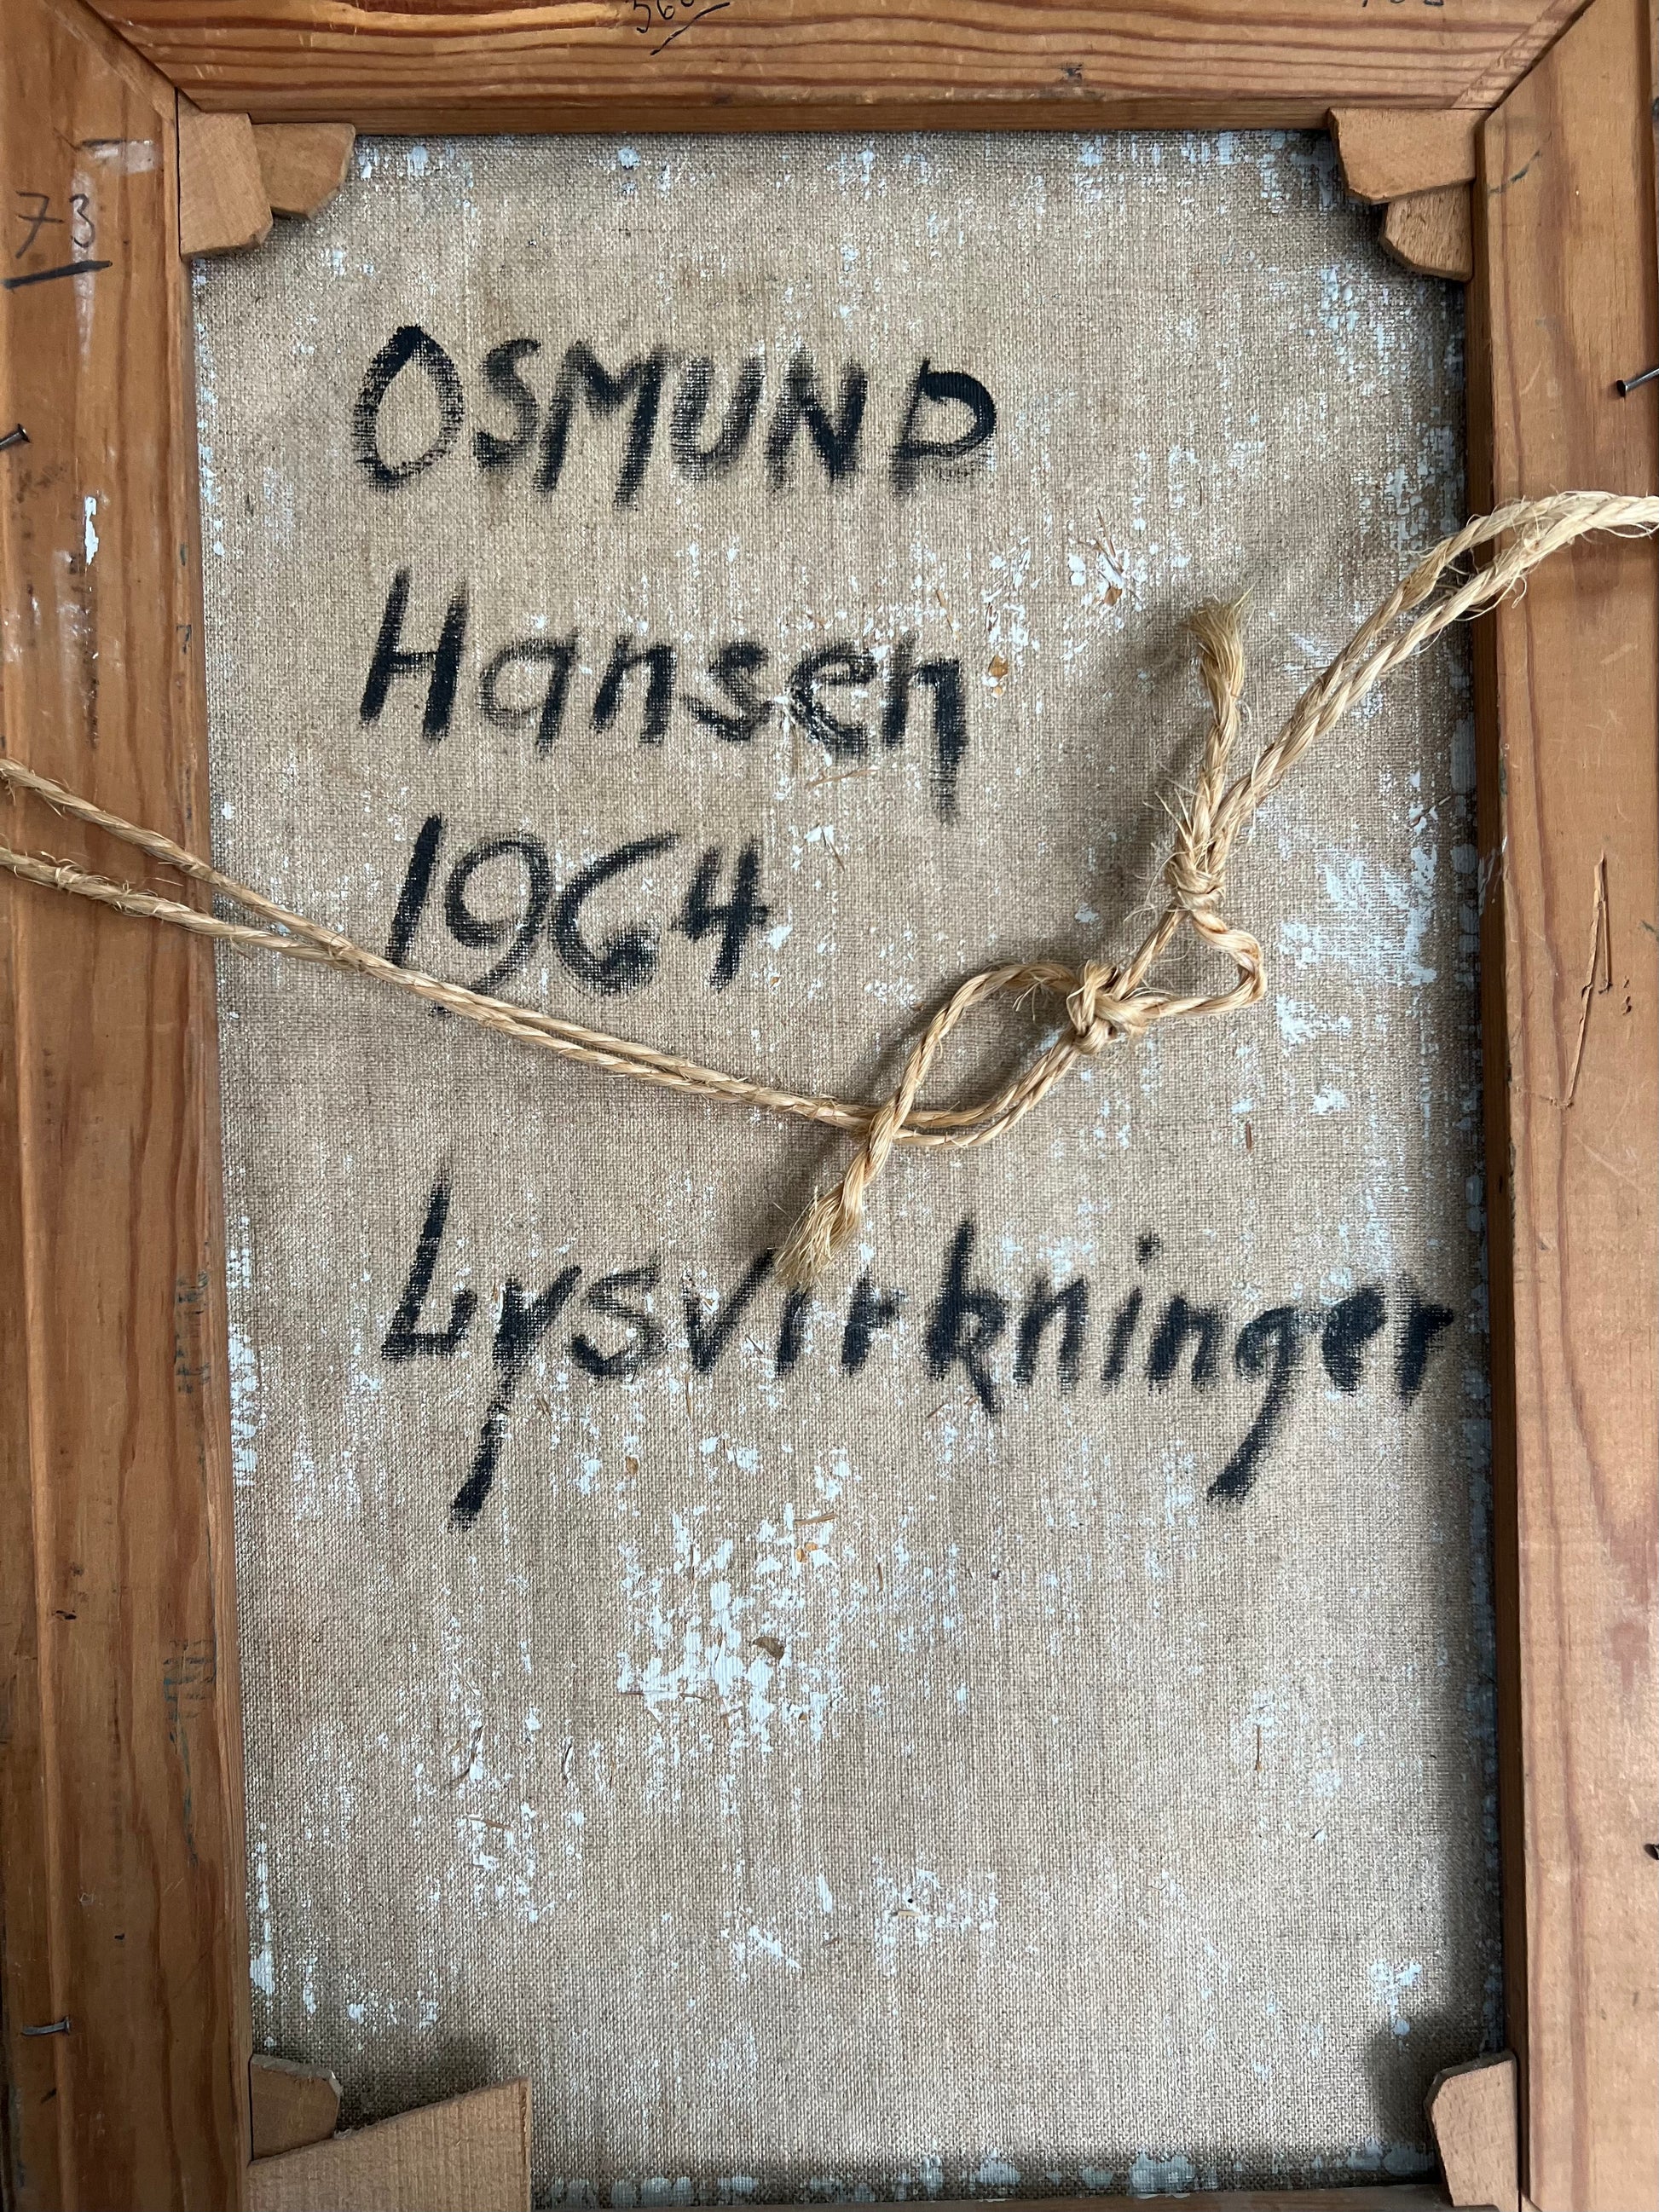 73
OSMUND
Hansen
1964
Lysvirkninger